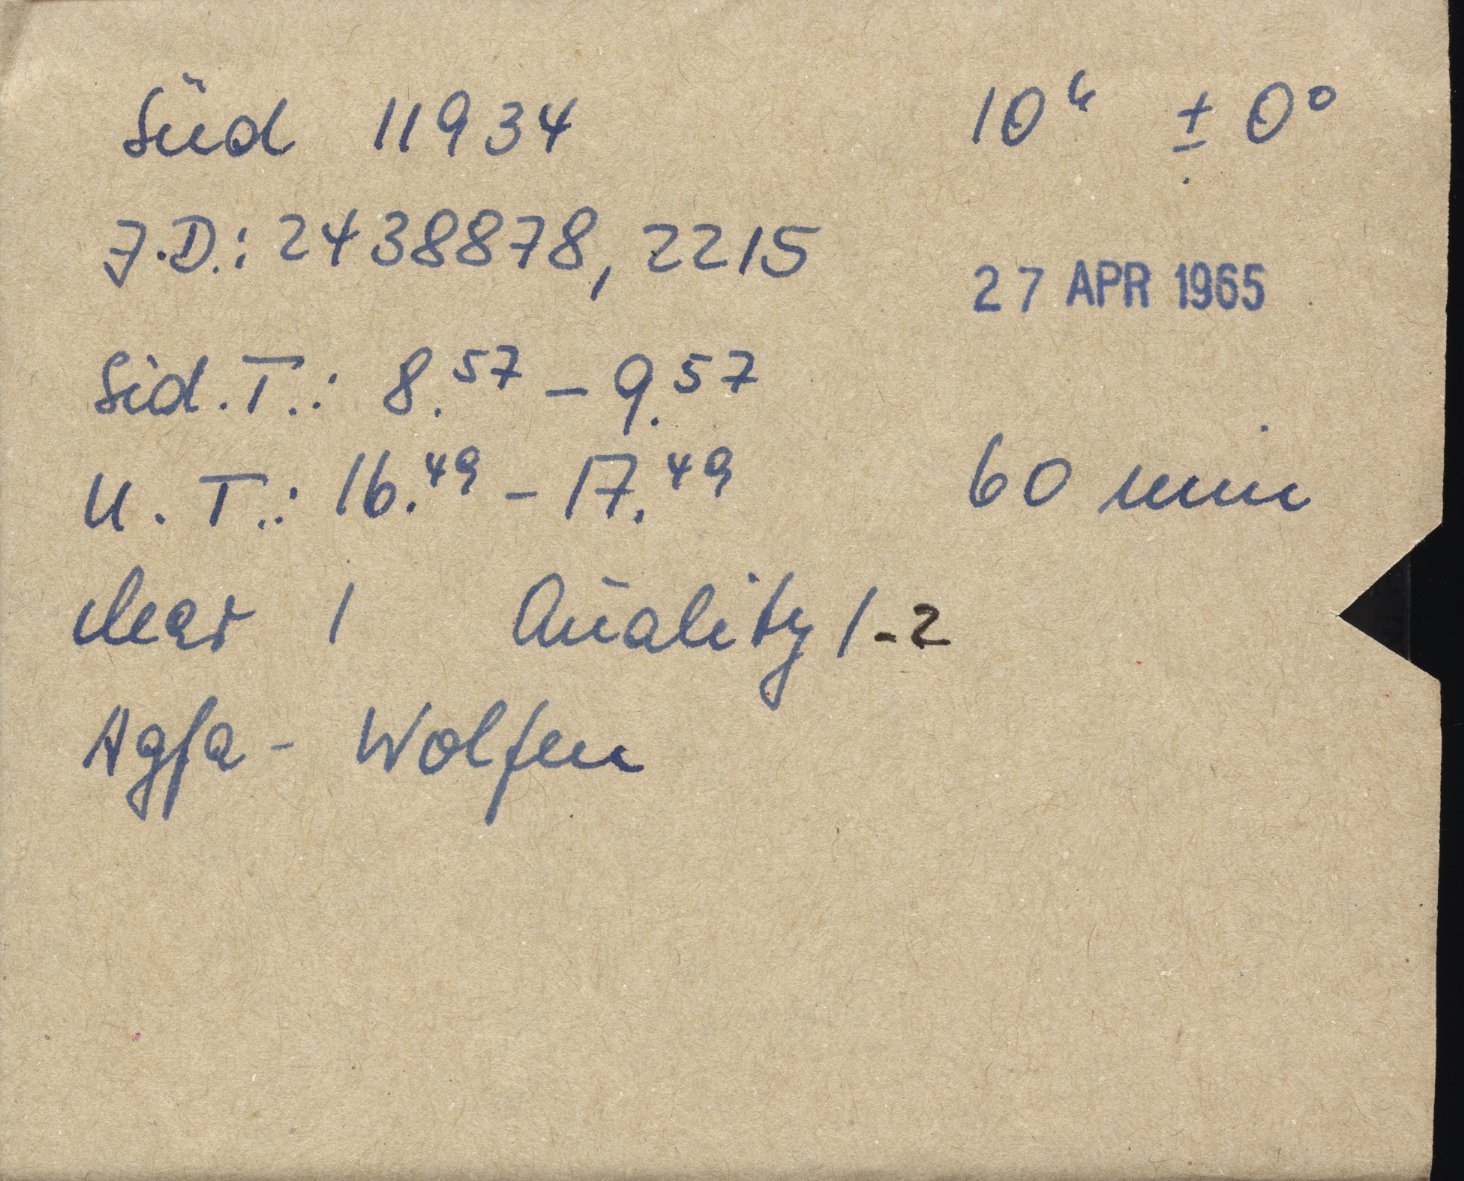 Süd 11934 10ʰ ± 0°
J.D.: 2438878,2215
27 APR 1965
Sid. T.: 8.⁵⁷ – 9.⁵⁷
U. T.: 16.⁴⁹ – 17.⁴⁹ 60 min
clear 1 Quality 1-2
Agfa - Wolfen